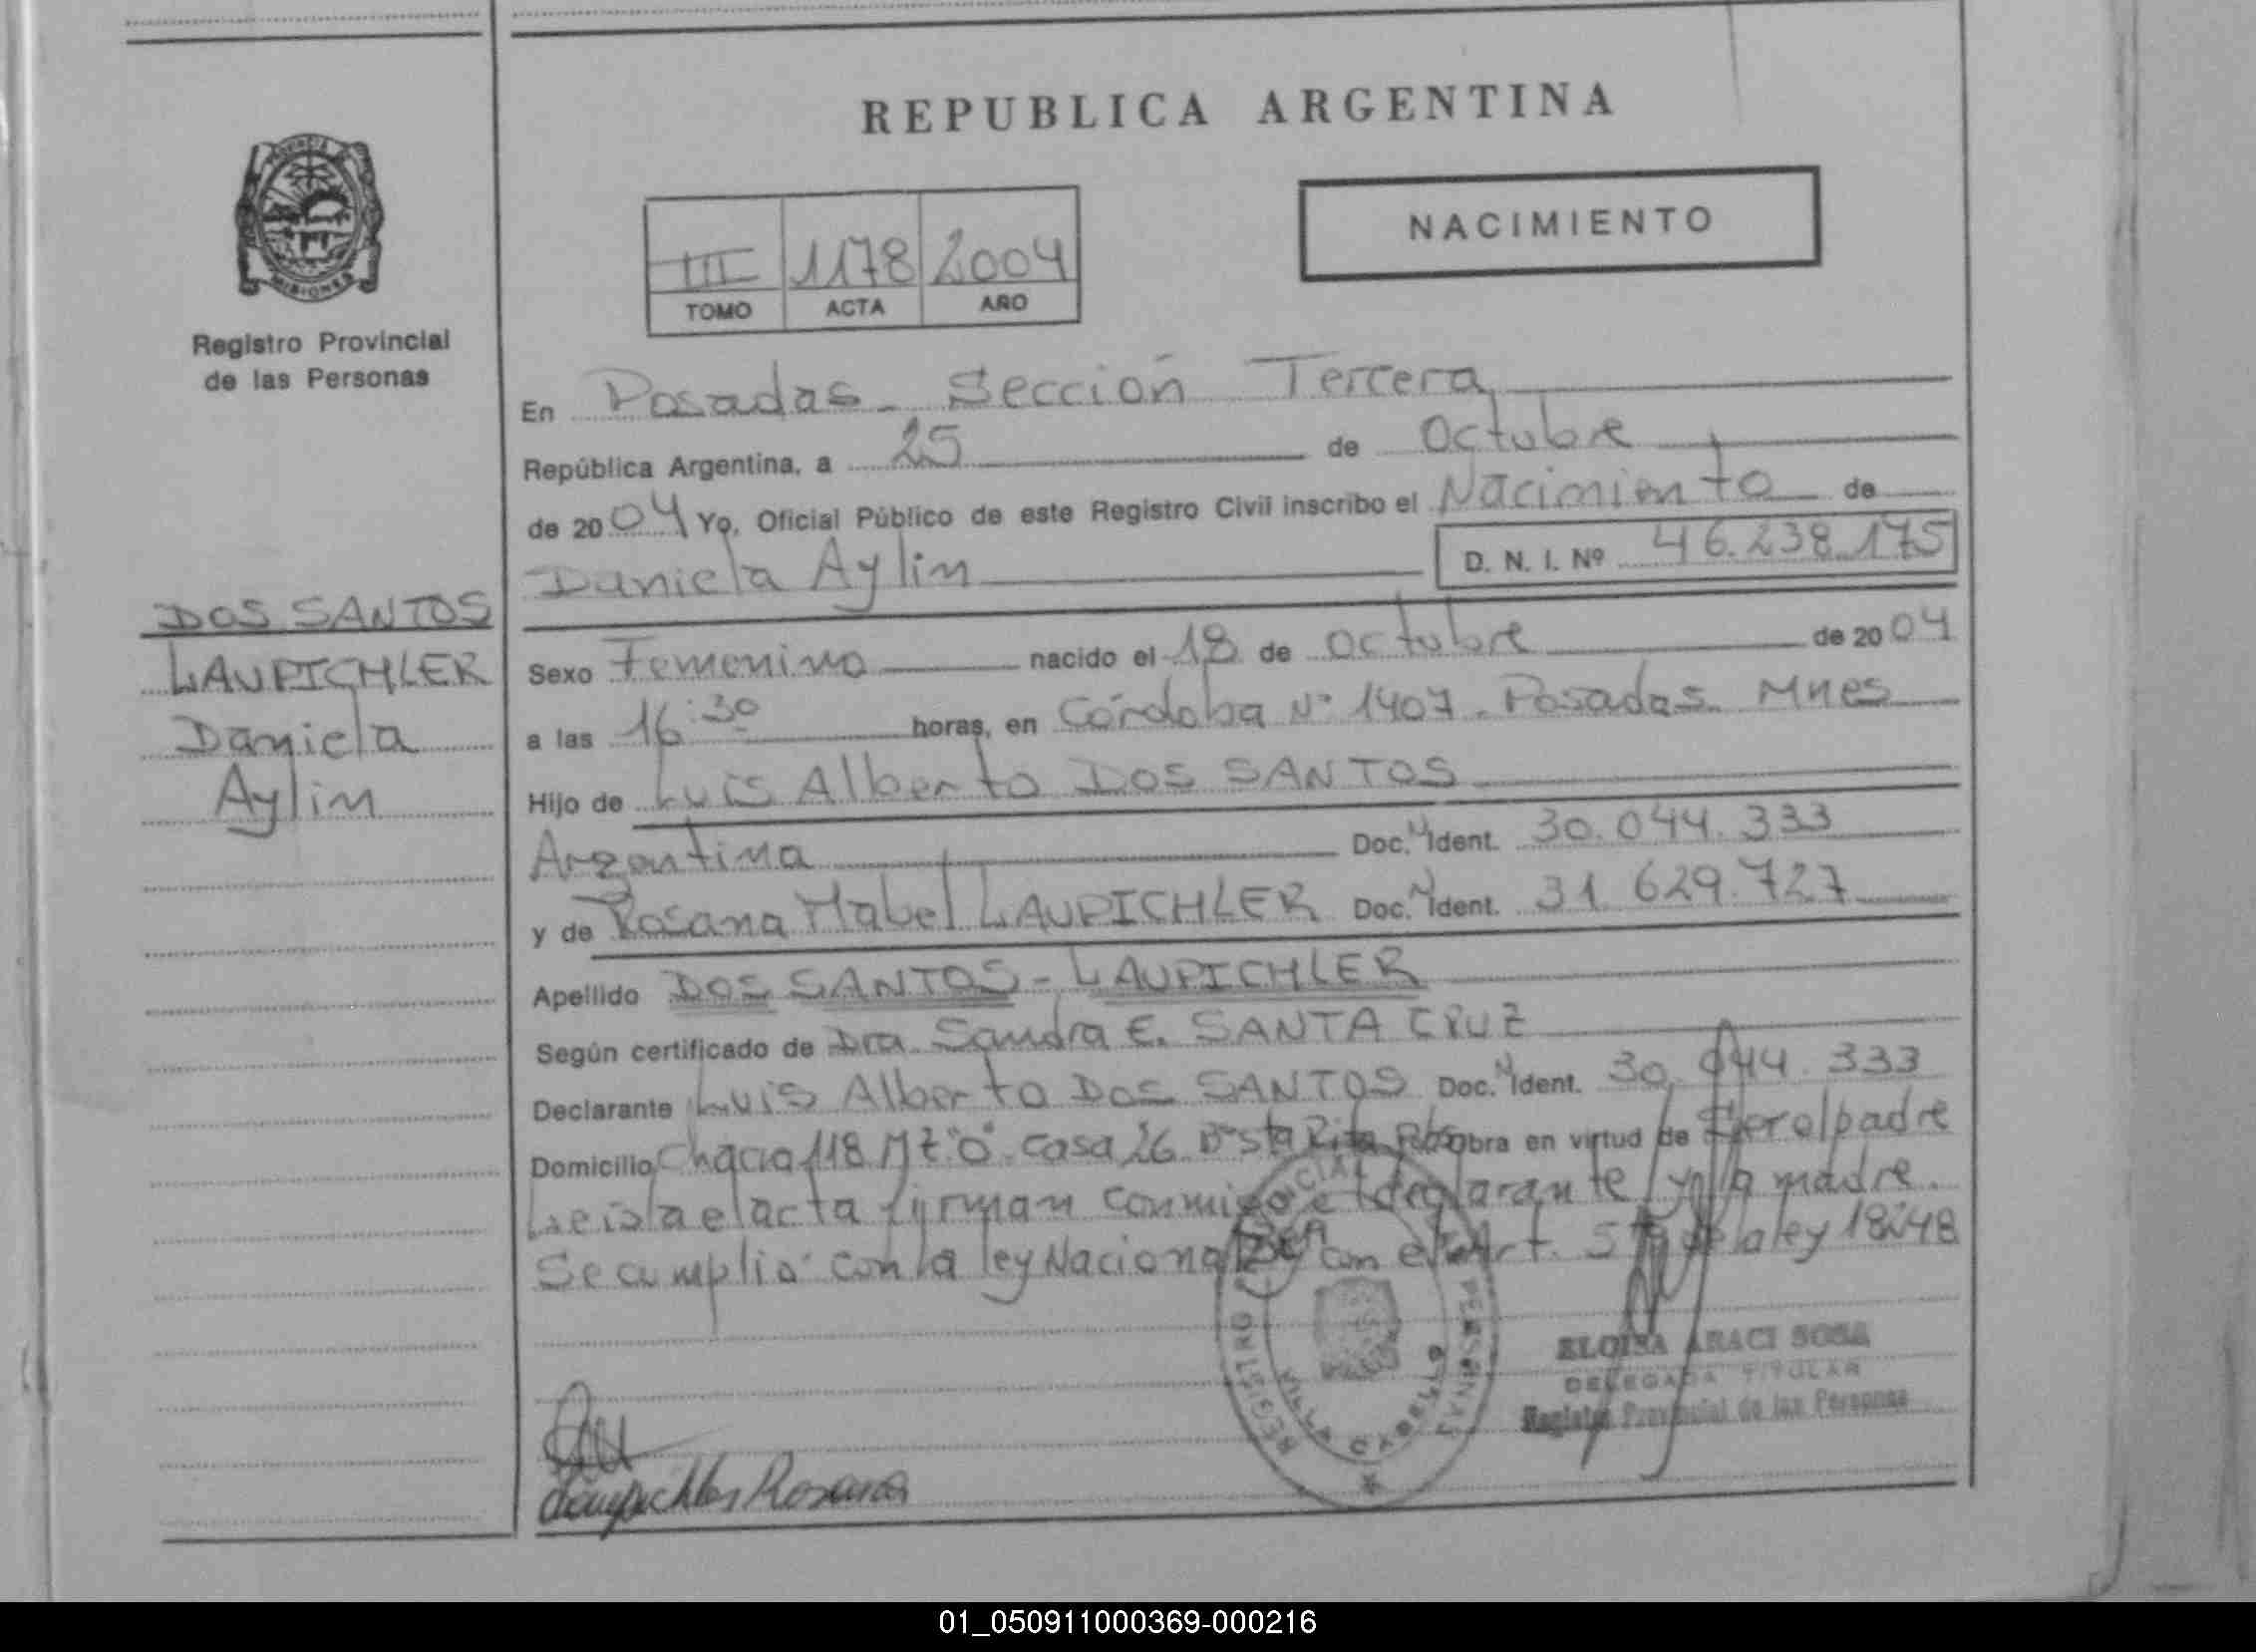 REPUBLICA ARGENTINA
NACIMIENTO
III 1178 2004
TOMO ACTA AÑO
PROVINCIA DE MISIONES
Registro Provincial
de las Personas
DOS SANTOS
LAUPICHLER
Daniela
Aylin
En Posadas - Sección Tercera
República Argentina, a 25 de Octubre
de 2004 Yo, Oficial Público de este Registro Civil inscribo el Nacimiento de
Daniela Aylin D. N. I. Nº 46.238.175
Sexo Femenino nacido el 18 de octubre de 2004
a las 16:30 horas, en Córdoba Nº 1407 - Posadas. Mnes
Hijo de Luis Alberto DOS SANTOS
Argentina Doc. N Ident. 30.044.333
y de Rosana Mabel LAUPICHLER Doc. N Ident. 31.629.727
Apellido DOS SANTOS - LAUPICHLER
Según certificado de Dra. Sandra E. SANTA CRUZ
Declarante Luis Alberto DOS SANTOS Doc. N Ident. 30.044.333
Domicilio Chacra 118 Mz "O" casa 26 Bº Sta Rita obra en virtud de ser el padre
Leída el acta firman conmigo el declarante y la madre.
Se cumplió con la ley Nacional con el Art. 5 de la ley 18248
REGISTRO PROVINCIAL PERSONAS
VILLA CABELLO
ELOISA ARACI SOSA
DELEGADA TITULAR
Registro Provincial de las Personas
Laupichler Rosana
01_050911000369-000216